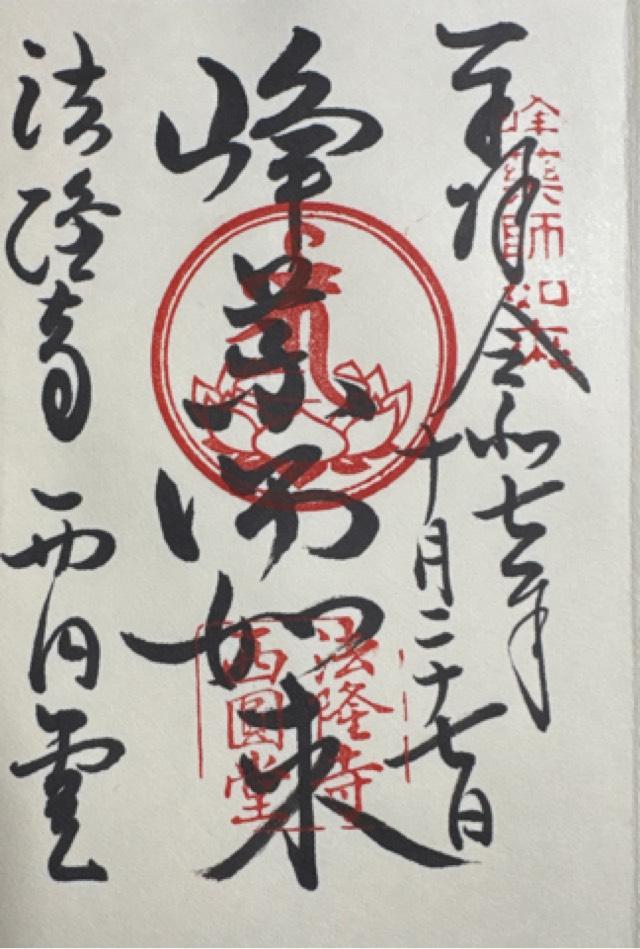 峰薬師如来
奉拝 令和七年
十月二十七日
峰薬師如来
法隆寺
西圓堂
法隆寺 西円堂